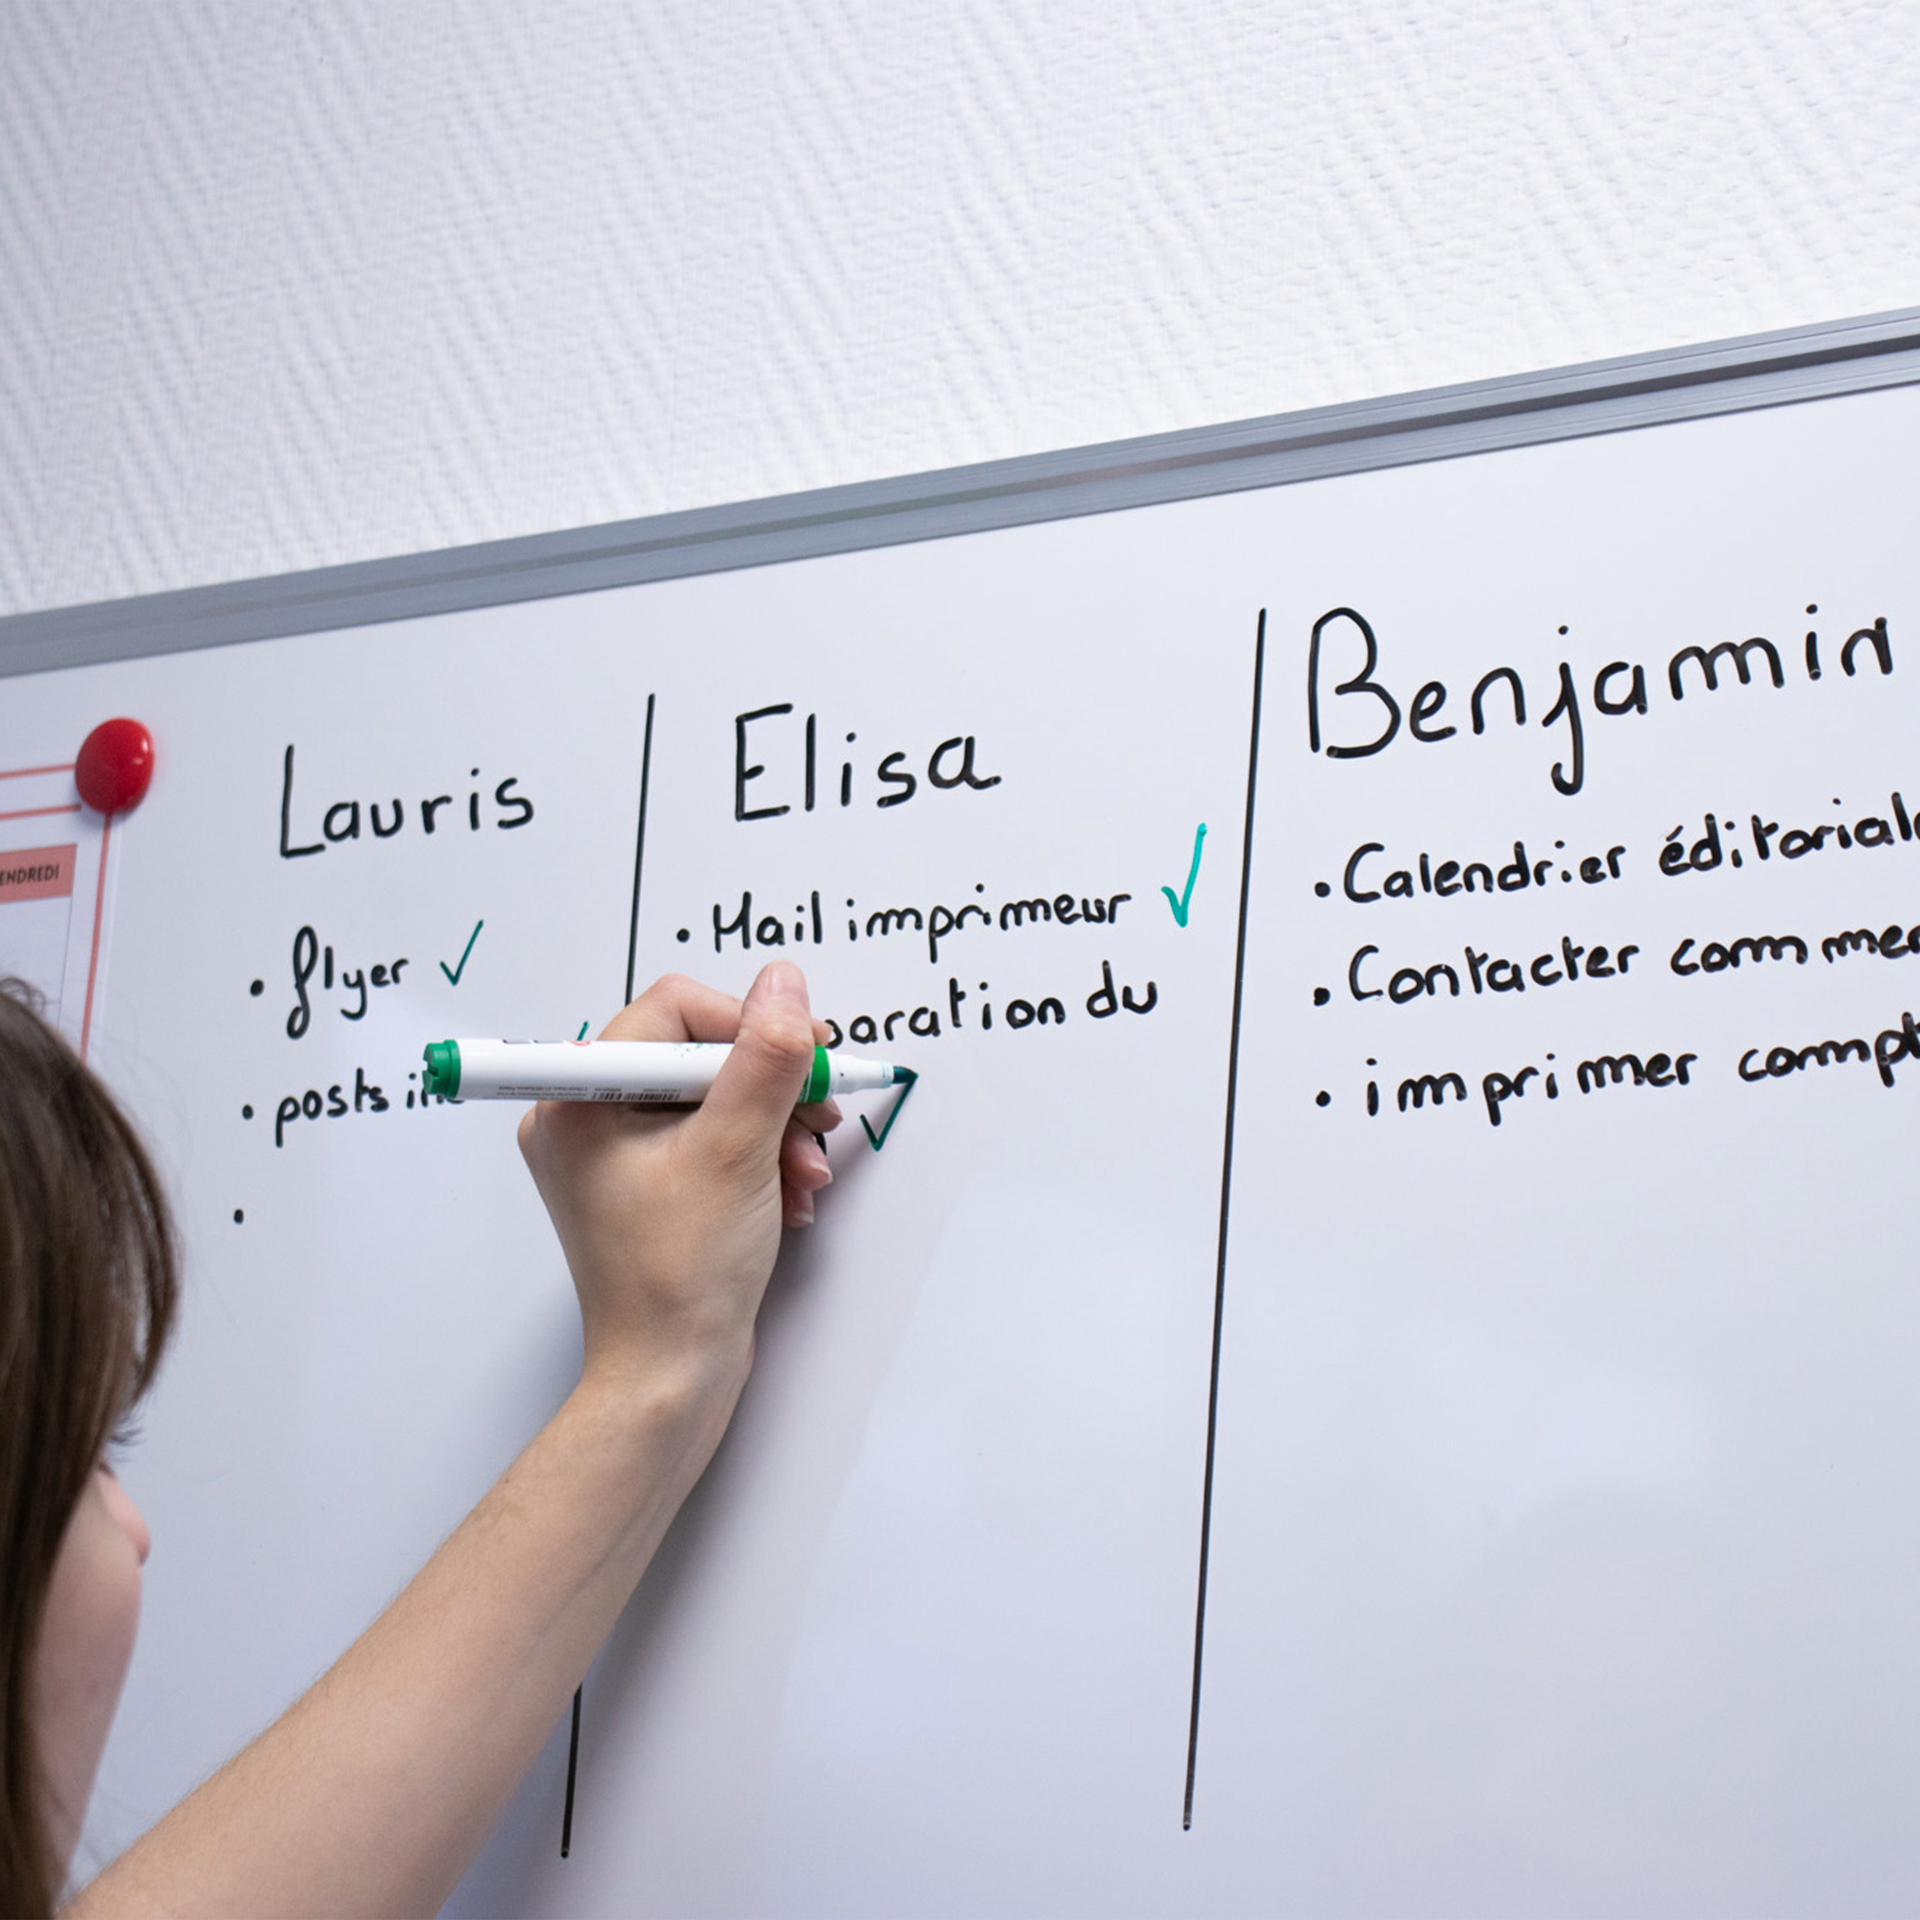 Lauris
• flyer ✓
• posts
•
Elisa
• Mail imprimeur ✓
paration du
✓
Benjamin
• Calendrier éditorial
• Contacter
• imprimer
ENDREDI